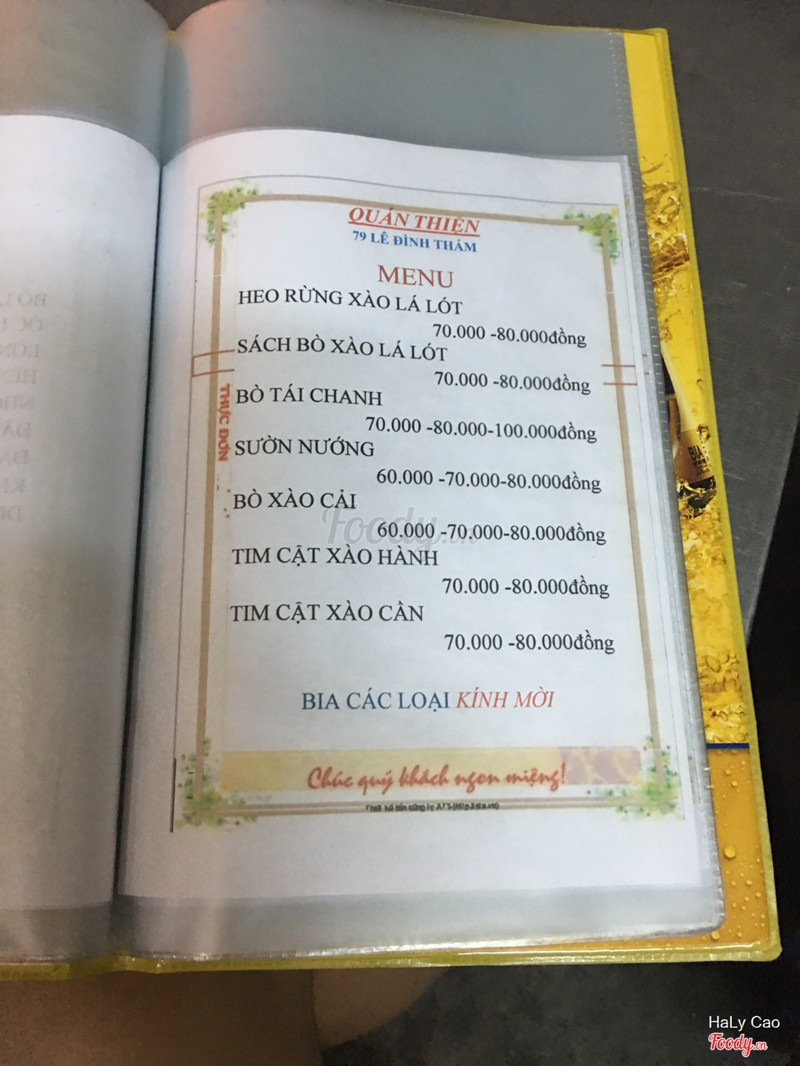 QUÁN THIỆN
79 LÊ ĐÌNH THÁM
MENU
HEO RỪNG XÀO LÁ LÓT
70.000 -80.000đồng
SÁCH BÒ XÀO LÁ LÓT
70.000 -80.000đồng
BÒ TÁI CHANH
70.000 -80.000-100.000đồng
SƯỜN NƯỚNG
60.000 -70.000-80.000đồng
BÒ XÀO CẢI
60.000 -70.000-80.000đồng
TIM CẬT XÀO HÀNH
70.000 -80.000đồng
TIM CẬT XÀO CẦN
70.000 -80.000đồng
THỰC ĐƠN
BIA CÁC LOẠI KÍNH MỜI
Chúc quý khách ngon miệng!
Foody.vn
BIA
HaLy Cao
Foody.vn